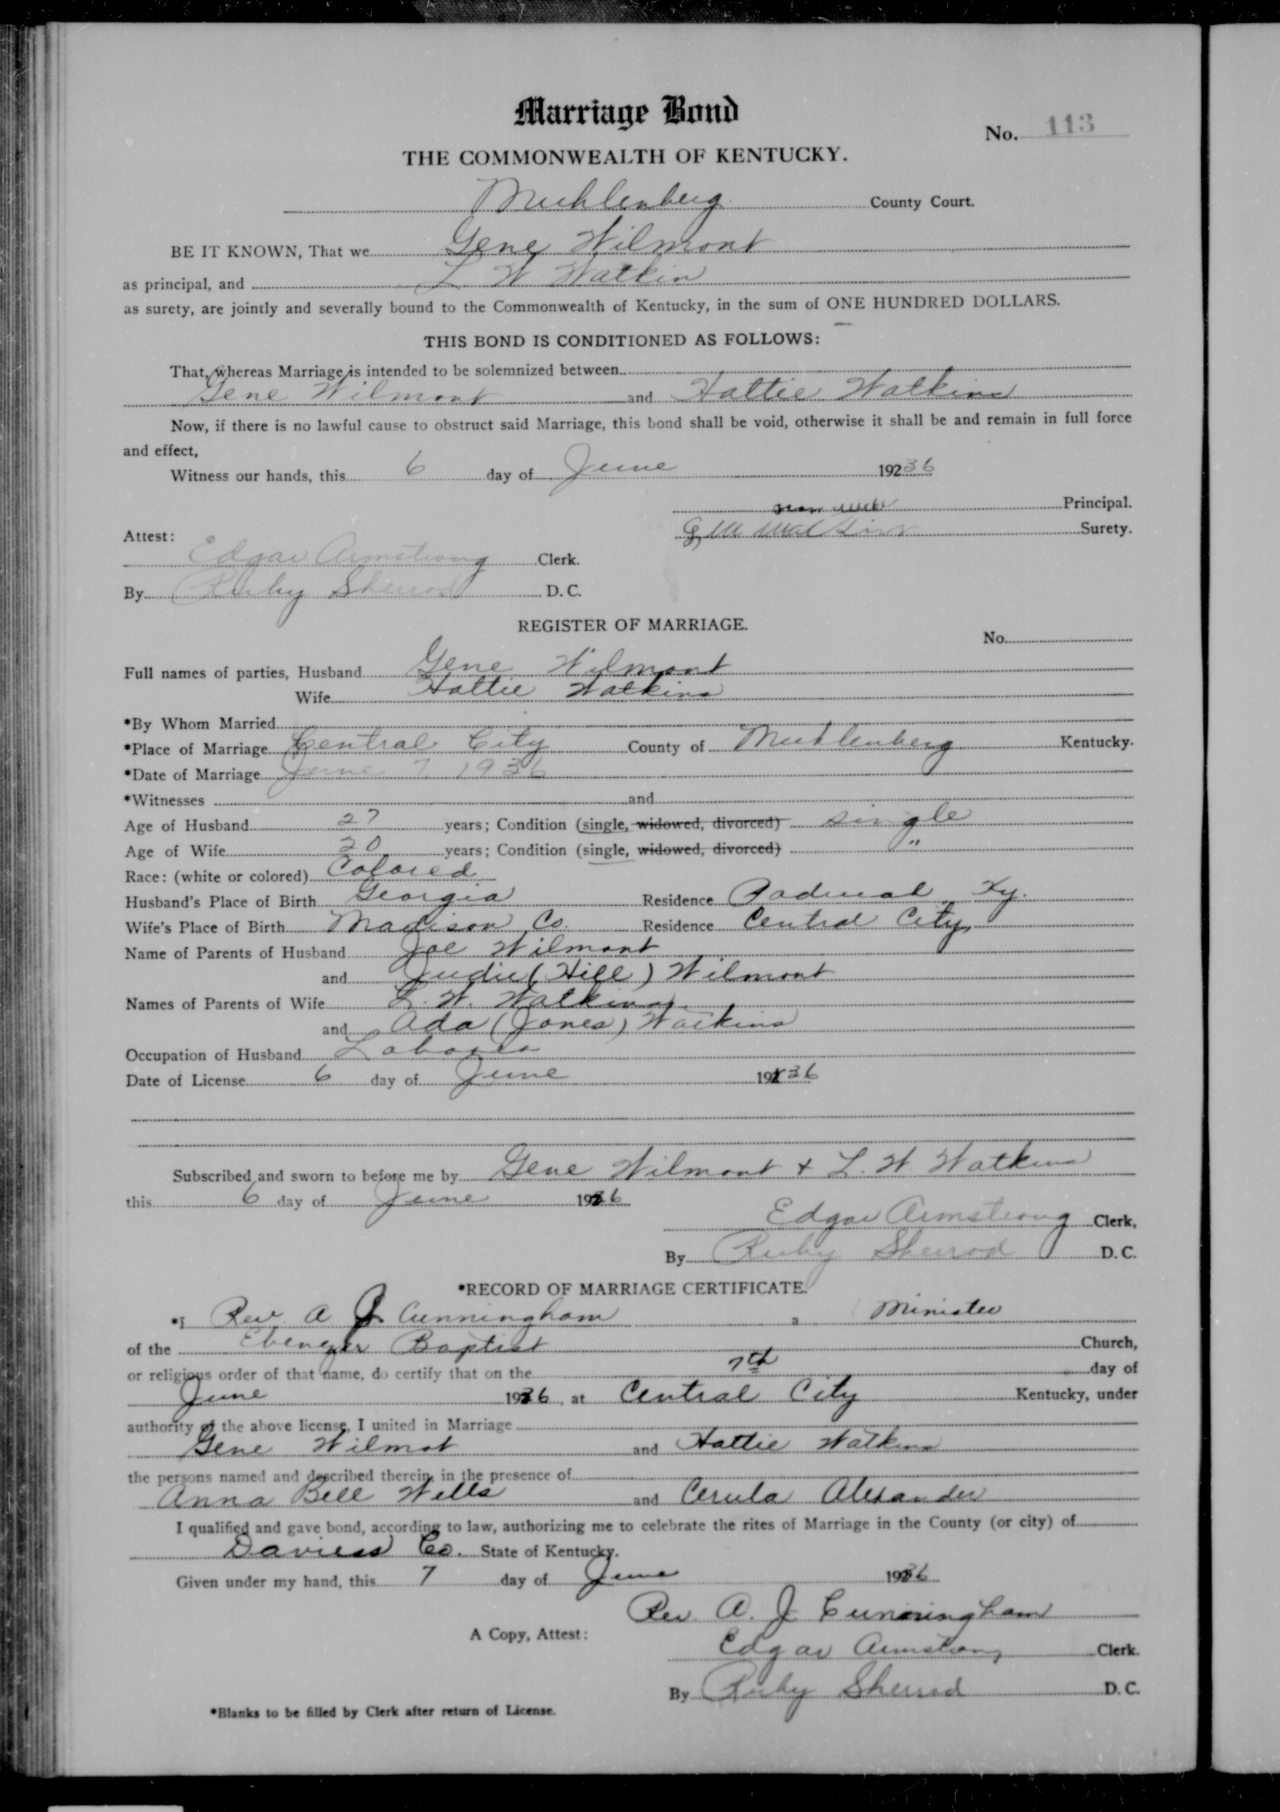 Marriage Bond
No. 113
THE COMMONWEALTH OF KENTUCKY.
Muhlenberg County Court.
BE IT KNOWN, That we Gene Wilmont
as principal, and L W Watkin
as surety, are jointly and severally bound to the Commonwealth of Kentucky, in the sum of ONE HUNDRED DOLLARS.
THIS BOND IS CONDITIONED AS FOLLOWS:
That, whereas Marriage is intended to be solemnized between
Gene Wilmont and Hattie Watkins
Now, if there is no lawful cause to obstruct said Marriage, this bond shall be void, otherwise it shall be and remain in full force
and effect,
Witness our hands, this 6 day of June 19236
Principal.
Surety.
Attest:
Edgar Armstrong Clerk.
By Ruby Sherrod D. C.
REGISTER OF MARRIAGE.
No.
Full names of parties, Husband Gene Wilmont
Wife Hattie Watkins
*By Whom Married
*Place of Marriage Central City County of Muhlenberg Kentucky.
*Date of Marriage June 7 1936
*Witnesses and
Age of Husband 27 years; Condition (single, widowed, divorced) single
Age of Wife 20 years; Condition (single, widowed, divorced) "
Race: (white or colored) Colored
Husband's Place of Birth Georgia Residence Ky.
Wife's Place of Birth Madison Co. Residence Central City
Name of Parents of Husband Joe Wilmont
and Judie (Hill) Wilmont
Names of Parents of Wife L. W. Watkins
and Ada (Jones) Watkins
Occupation of Husband Laborer
Date of License 6 day of June 1936
Subscribed and sworn to before me by Gene Wilmont + L. W. Watkins
this 6 day of June 1936
Edgar Armstrong Clerk,
By Ruby Sherrod D. C.
*RECORD OF MARRIAGE CERTIFICATE.
*I Rev A J Cunningham a Minister
of the Ebenezer Baptist Church,
or religious order of that name, do certify that on the 7th day of
June 1936, at Central City Kentucky, under
authority of the above license, I united in Marriage
Gene Wilmot and Hattie Watkins
the persons named and described therein, in the presence of
Anna Bell Wells and Cerula Alexander
I qualified and gave bond, according to law, authorizing me to celebrate the rites of Marriage in the County (or city) of
Daviess Co. State of Kentucky.
Given under my hand, this 7 day of June 1936
Rev. A. J. Cunningham
A Copy, Attest:
Edgar Armstrong Clerk.
By Ruby Sherrod D. C.
*Blanks to be filled by Clerk after return of License.